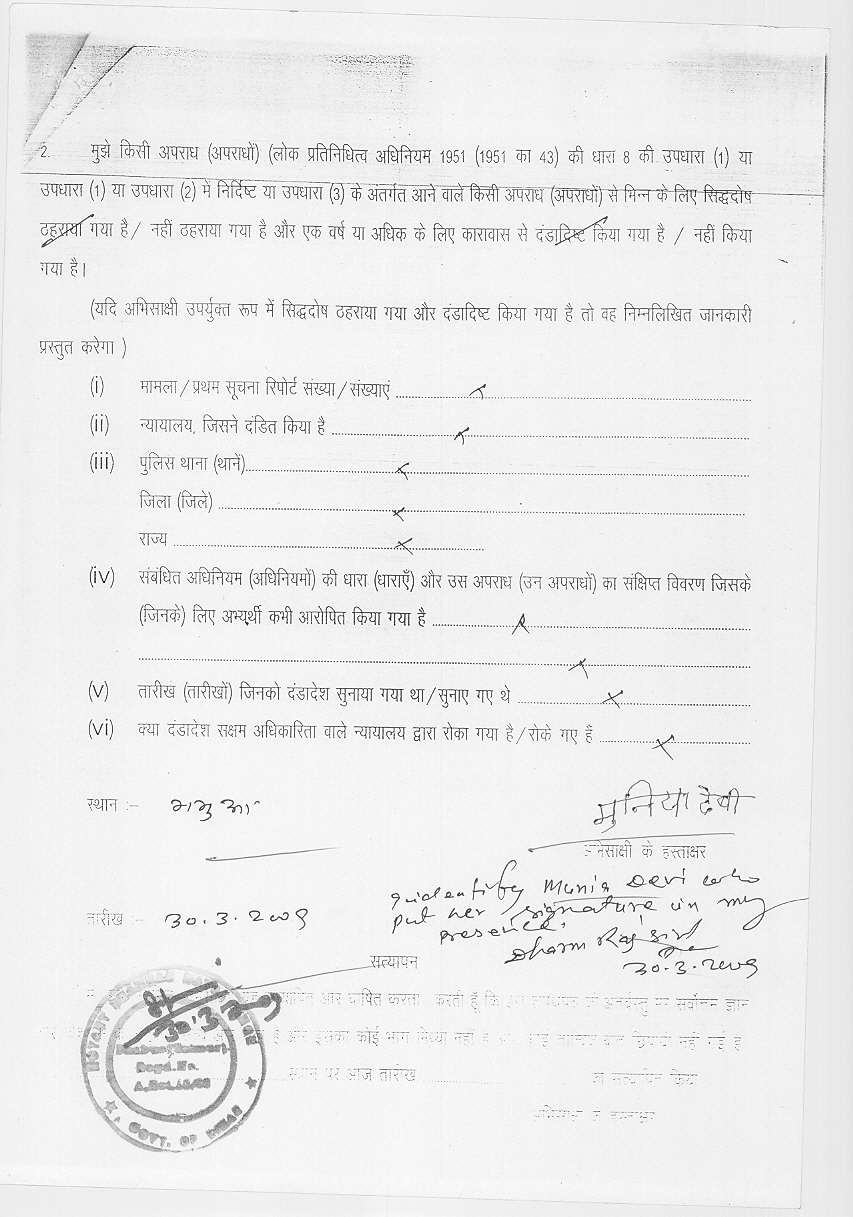 2. मुझे किसी अपराध (अपराधों) (लोक प्रतिनिधित्व अधिनियम 1951 (1951 का 43) की धारा 8 की उपधारा (1) या
उपधारा (1) या उपधारा (2) में निर्दिष्ट या उपधारा (3) के अंतर्गत आने वाले किसी अपराध (अपराधों) से भिन्न के लिए सिद्धदोष
ठहराया गया है / नहीं ठहराया गया है और एक वर्ष या अधिक के लिए कारावास से दंडादिष्ट किया गया है / नहीं किया
गया है।
(यदि अभिसाक्षी उपर्युक्त रूप में सिद्धदोष ठहराया गया और दंडादिष्ट किया गया है तो वह निम्नलिखित जानकारी
प्रस्तुत करेगा )
(i) मामला / प्रथम सूचना रिपोर्ट संख्या / संख्याएं ........ x
(ii) न्यायालय, जिसने दंडित किया है ........ x
(iii) पुलिस थाना (थानें) ........ x
जिला (जिले) ........ x
राज्य ........ x
(iv) संबंधित अधिनियम (अधिनियमों) की धारा (धाराएँ) और उस अपराध (उन अपराधों) का संक्षिप्त विवरण जिसके
(जिनके) लिए अभ्यर्थी कभी आरोपित किया गया है ........ x
........ x
(v) तारीख (तारीखों) जिनको दंडादेश सुनाया गया था / सुनाए गए थे ........ x
(vi) क्या दंडादेश सक्षम अधिकारिता वाले न्यायालय द्वारा रोका गया है / रोके गए हैं ........ x
स्थान :– भभुआ
मुनिया देवी
अभिसाक्षी के हस्ताक्षर
I identify Munia Devi who
put her signature in my
presence.
तारीख :– 30.3.2009
Dharm Raj
30.3.2009
सत्यापन
घोषित करता करती हूँ कि सर्वोत्तम ज्ञान
और इसका कोई भाग मिथ्या नहीं है छिपायी नहीं गई है
स्थान पर आज तारीख सत्यापित किया
NOTARY
30.3.09
Regd. No.
GOVT. OF BIHAR